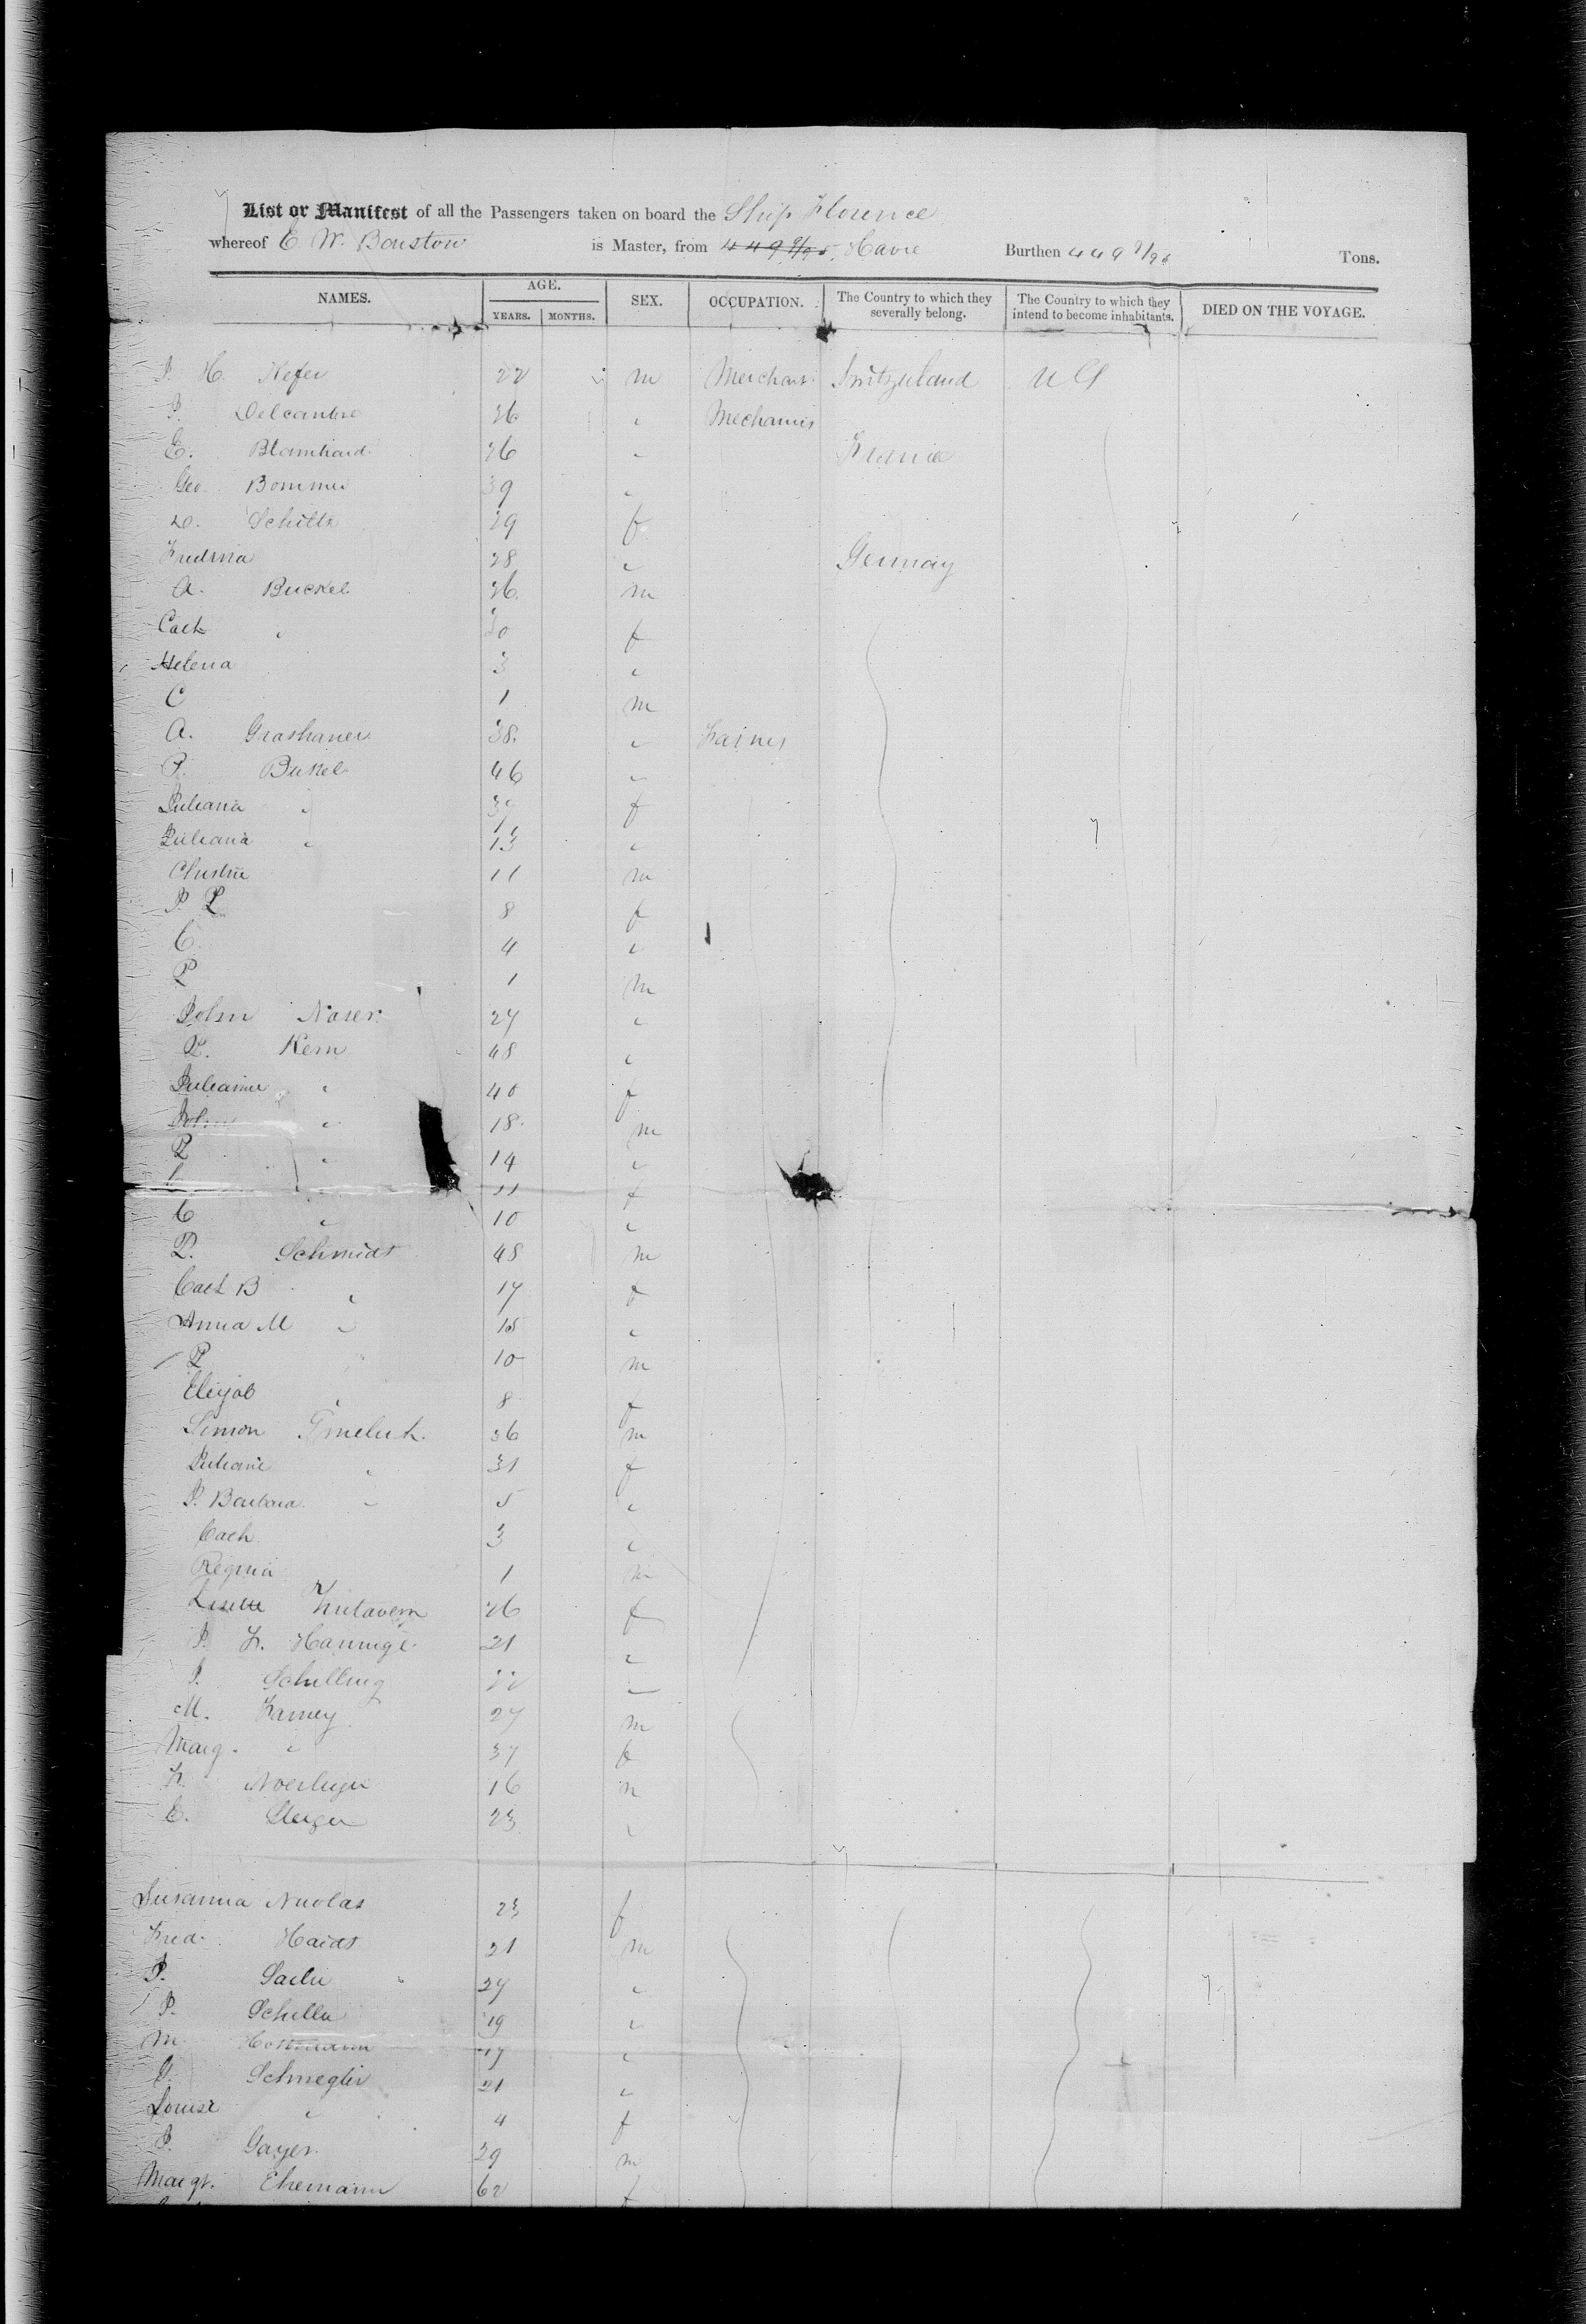 List or Manifest of all the Passengers taken on board the Ship Florence
whereof E W. is Master, from 449 9/95 Havre Burthen 449 9/95 Tons.
NAMES. AGE. YEARS. MONTHS. SEX. OCCUPATION. The Country to which they severally belong. The Country to which they intend to become inhabitants. DIED ON THE VOYAGE.
J. H. Hefer 22 m Merchant Switzerland U S
J. Delcambre 36 " Mechanics
E. 26 " France
Geo. Bommer 39 "
D. Schiltz 29 f
28 " Germany
A. Buckel 26 m
Cath " 30 f
Helena 3 "
C 1 m
A. Grashaner 38 " Farmer
P. Bukel 46 "
Juliana " 37 f
Juliana " 13 "
Christin 11 m
P. L 8 f
C. 4 "
P 1 m
John Naser 27 "
P. Kern 48 "
Julianne " 40 f
John " 18 m
P " 14 "
" 11 f
C " 10 "
P. Schmidt 48 m
Cath B " 17 f
Anna M " 15 "
P 10 m
Elizab " 8 f
Simon 36 m
Juliane " 31 f
J. Barbara " 5 "
Cath 3 "
Regina 1 m
Lisette 26 f
J. F. 21 "
J. Schilling 22 "
M. Farney 27 m
Marg. " 37 f
F. 16 m
E. Steiger 23 "
Susanna Nicolas 23 f
Fred. Haidt 21 m
J. 27 "
P. Schiller 19 "
M. 17 "
J. 21 "
Louise " 4 f
J. Gayer 29 m
Margt. Ehemann 62 f